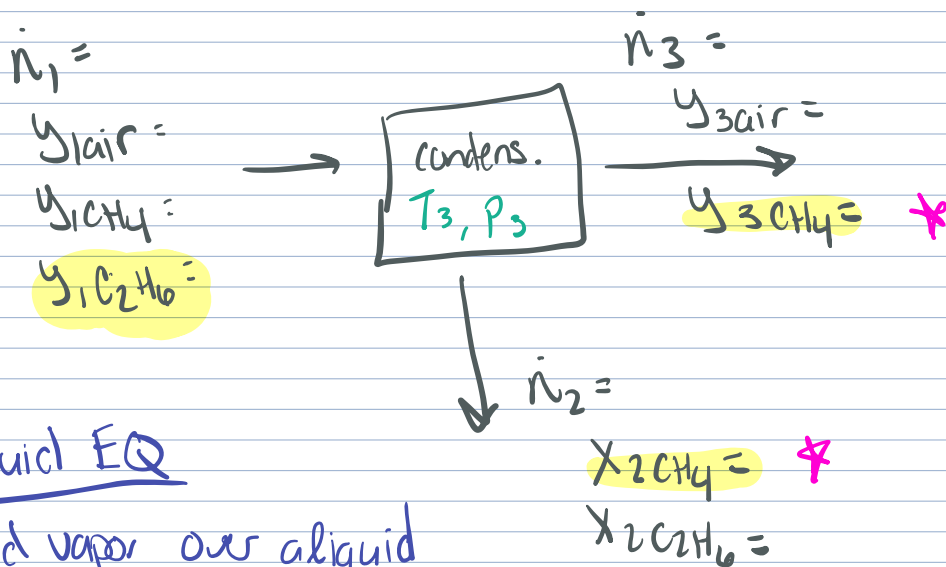 ṅ₁ =
y₁air =
y₁CH₄ =
y₁C₂H₆ =
condens.
T₃, P₃
ṅ₃ =
y₃air =
y₃CH₄ = *
ṅ₂ =
x₂CH₄ = *
x₂C₂H₆ =
uid EQ
d vapor over a liquid